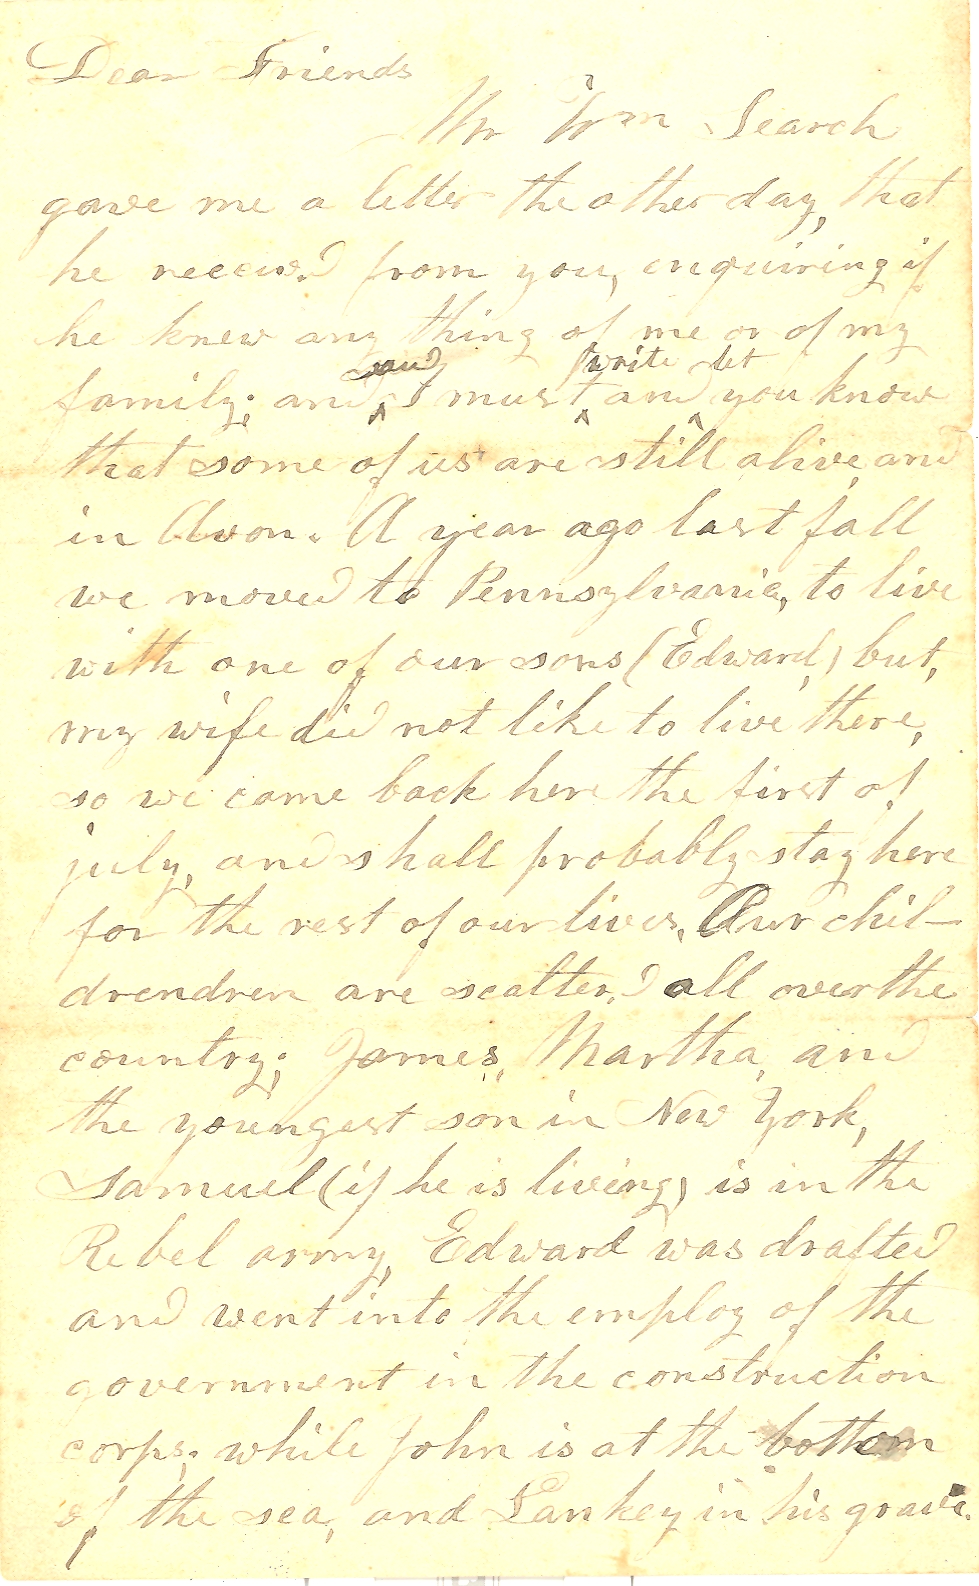 Dear Friends
Mr Wm Search
gave me a letter the other day, that
he receiv.d from you, enquiring if
he knew any thing of me or of my
said write let
family; and I must and you know
that some of us are still alive and
in Avon. A year ago last fall
we moved to Pennsylvania, to live
with one of our sons (Edward,) but,
my wife did not like to live there,
so we came back here the first of
july, and shall probably stay here
for the rest of our lives. Our chil-
drendren are scatter.d all over the
country; James, Martha, and
the youngest son in New York,
Samuel (if he is living) is in the
Rebel army, Edward was drafted
and went into the employ of the
government in the construction
corps; while John is at the bottom
of the sea, and Lankey in his grave.